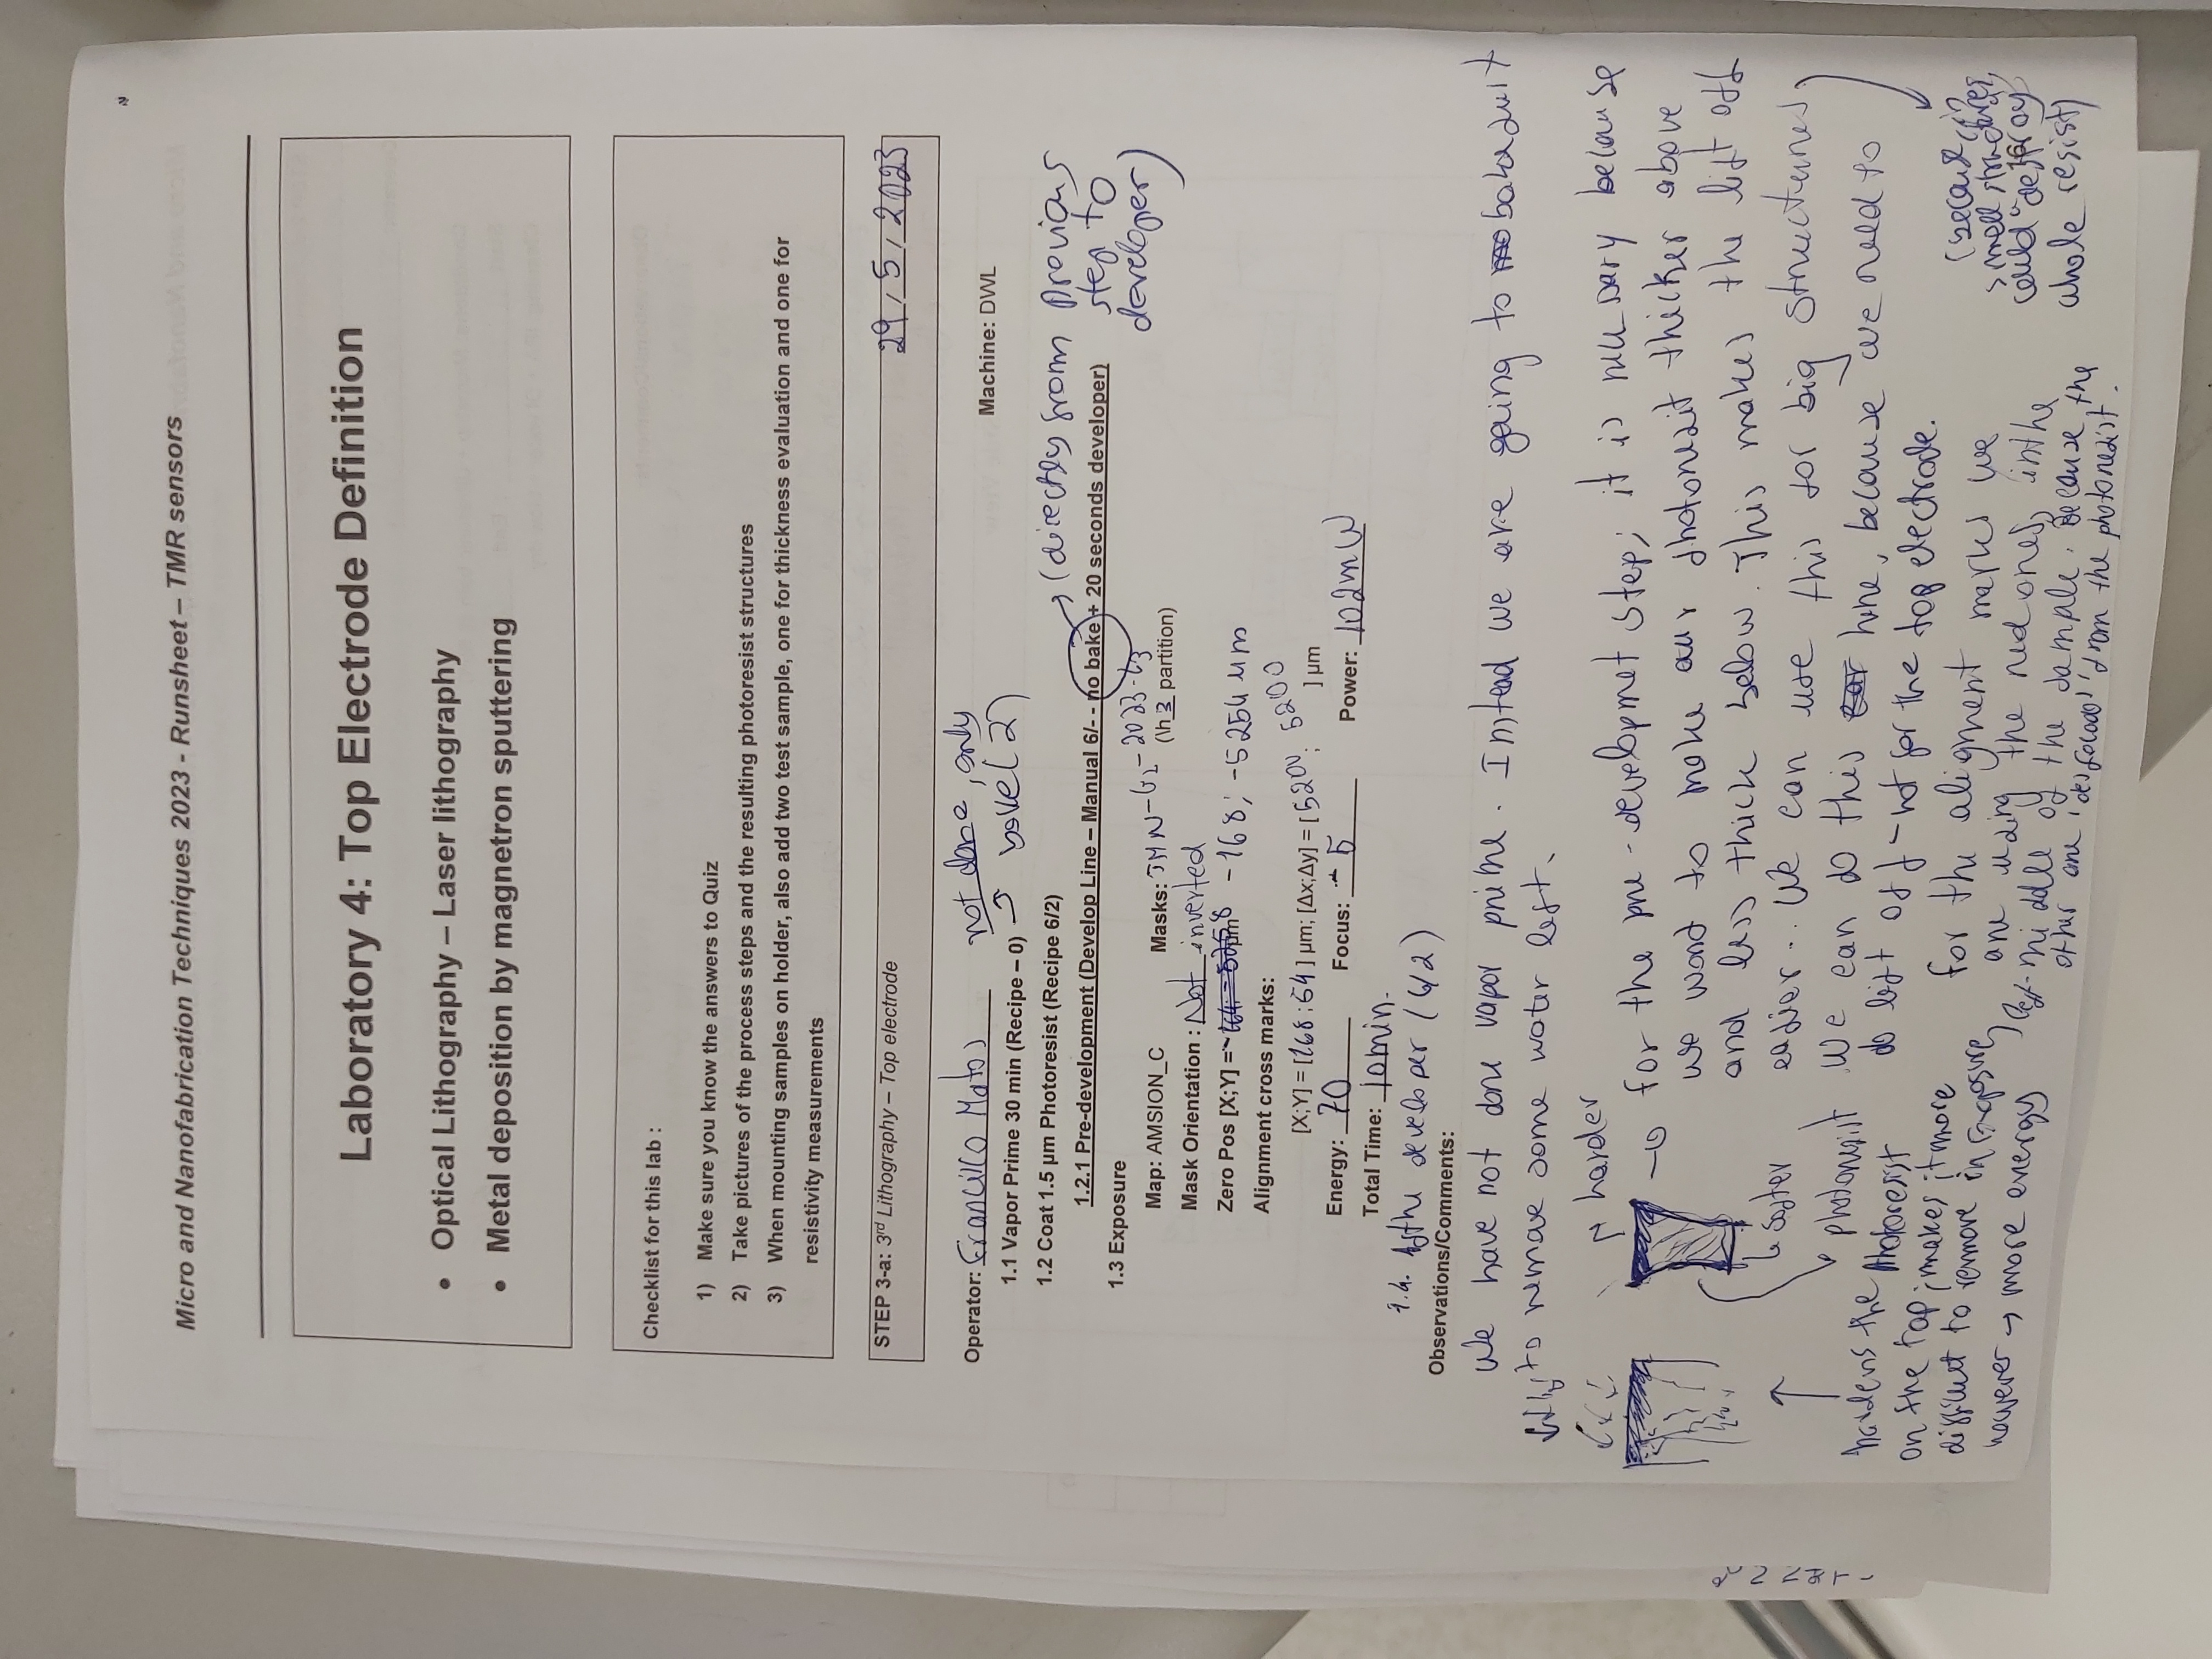 Micro and Nanofabrication Techniques 2023 - Runsheet – TMR sensors
Laboratory 4: Top Electrode Definition
• Optical Lithography – Laser lithography
• Metal deposition by magnetron sputtering
Checklist for this lab :
1) Make sure you know the answers to Quiz
2) Take pictures of the process steps and the resulting photoresist structures
3) When mounting samples on holder, also add two test sample, one for thickness evaluation and one for
resistivity measurements
STEP 3-a: 3rd Lithography – Top electrode
29 / 5 / 2023
Operator: Francisco Matos
not done, only
bake (2)
Machine: DWL
1.1 Vapor Prime 30 min (Recipe – 0) →
1.2 Coat 1.5 µm Photoresist (Recipe 6/2)
1.2.1 Pre-development (Develop Line – Manual 6/- - no bake + 20 seconds developer)
→ (directly from previous
step to
developer)
1.3 Exposure
Map: AMSION_C Masks: (\h 3 partition)
Mask Orientation : Not inverted
Zero Pos [X;Y] = µm -168; -5254 µm
Alignment cross marks:
[X;Y] = [168 ; 54] µm; [Δx;Δy] = [5200; 5200] µm
Energy: 70 Focus: -5 Power: 102mW
Total Time: 10min.
1.4. developer (6/2)
Observations/Comments:
We have not done vapor prime. Instead we are going to bake
to remove some water left.
harder
softer
photoresist
for the pre-developmet step; it is necessary because
we want to make our photoresit thicker above
and less thick below. This makes the lift off
easier.. We can use this for big structures,
We can do this here, because we need to
do lift off - not for the top electrode.
(because in
small structures,
could destroy
whole resist)
hardens the photoresist
on the top; makes it more
difficult to remove in exposure,
however → more energy
for the aligment marks we
are using the red ones, in the
left-middle of the sample. Because the
other are 'desfocados' from the photoresist.
16